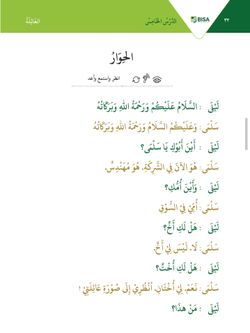 ٢٢ الدَّرْسُ الْخَامِسُ BISA
العَائِلَةُ
الحِوَارُ
انظر واستمع وأعد
لَيْلَى : السَّلَامُ عَلَيْكُمْ وَرَحْمَةُ اللهِ وَبَرَكَاتُهُ
سَلْمَى: وَعَلَيْكُمُ السَّلَامُ وَرَحْمَةُ اللهِ وَبَرَكَاتُهُ
لَيْلَى : أَيْنَ أَبُوكِ يَا سَلْمَى؟
سَلْمَى: هُوَ الآنَ فِي الشَّرِكَةِ، هُوَ مُهَنْدِسٌ.
لَيْلَى : وَأَيْنَ أُمُّكِ؟
سَلْمَى: أُمِّيْ فِي السُّوْقِ
لَيْلَى : هَلْ لَكِ أَخٌ؟
سَلْمَى: لَا، لَيْسَ لِيْ أَخٌ.
لَيْلَى : هَلْ لَكِ أُخْتٌ؟
سَلْمَى: نَعَمْ، لِيْ أُخْتَانِ، اُنْظُرِيْ إِلَى صُوْرَةِ عَائِلَتِيْ !
لَيْلَى : مَنْ هَذَا؟